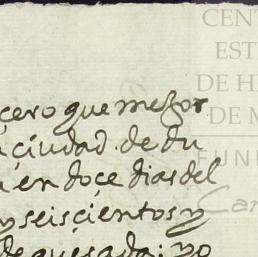 CEN
EST
DE H
DE M
FUN
Car
çero que mejor
çiudad. de du
en doçe dias del
y seisçientos y
de quesada; yo